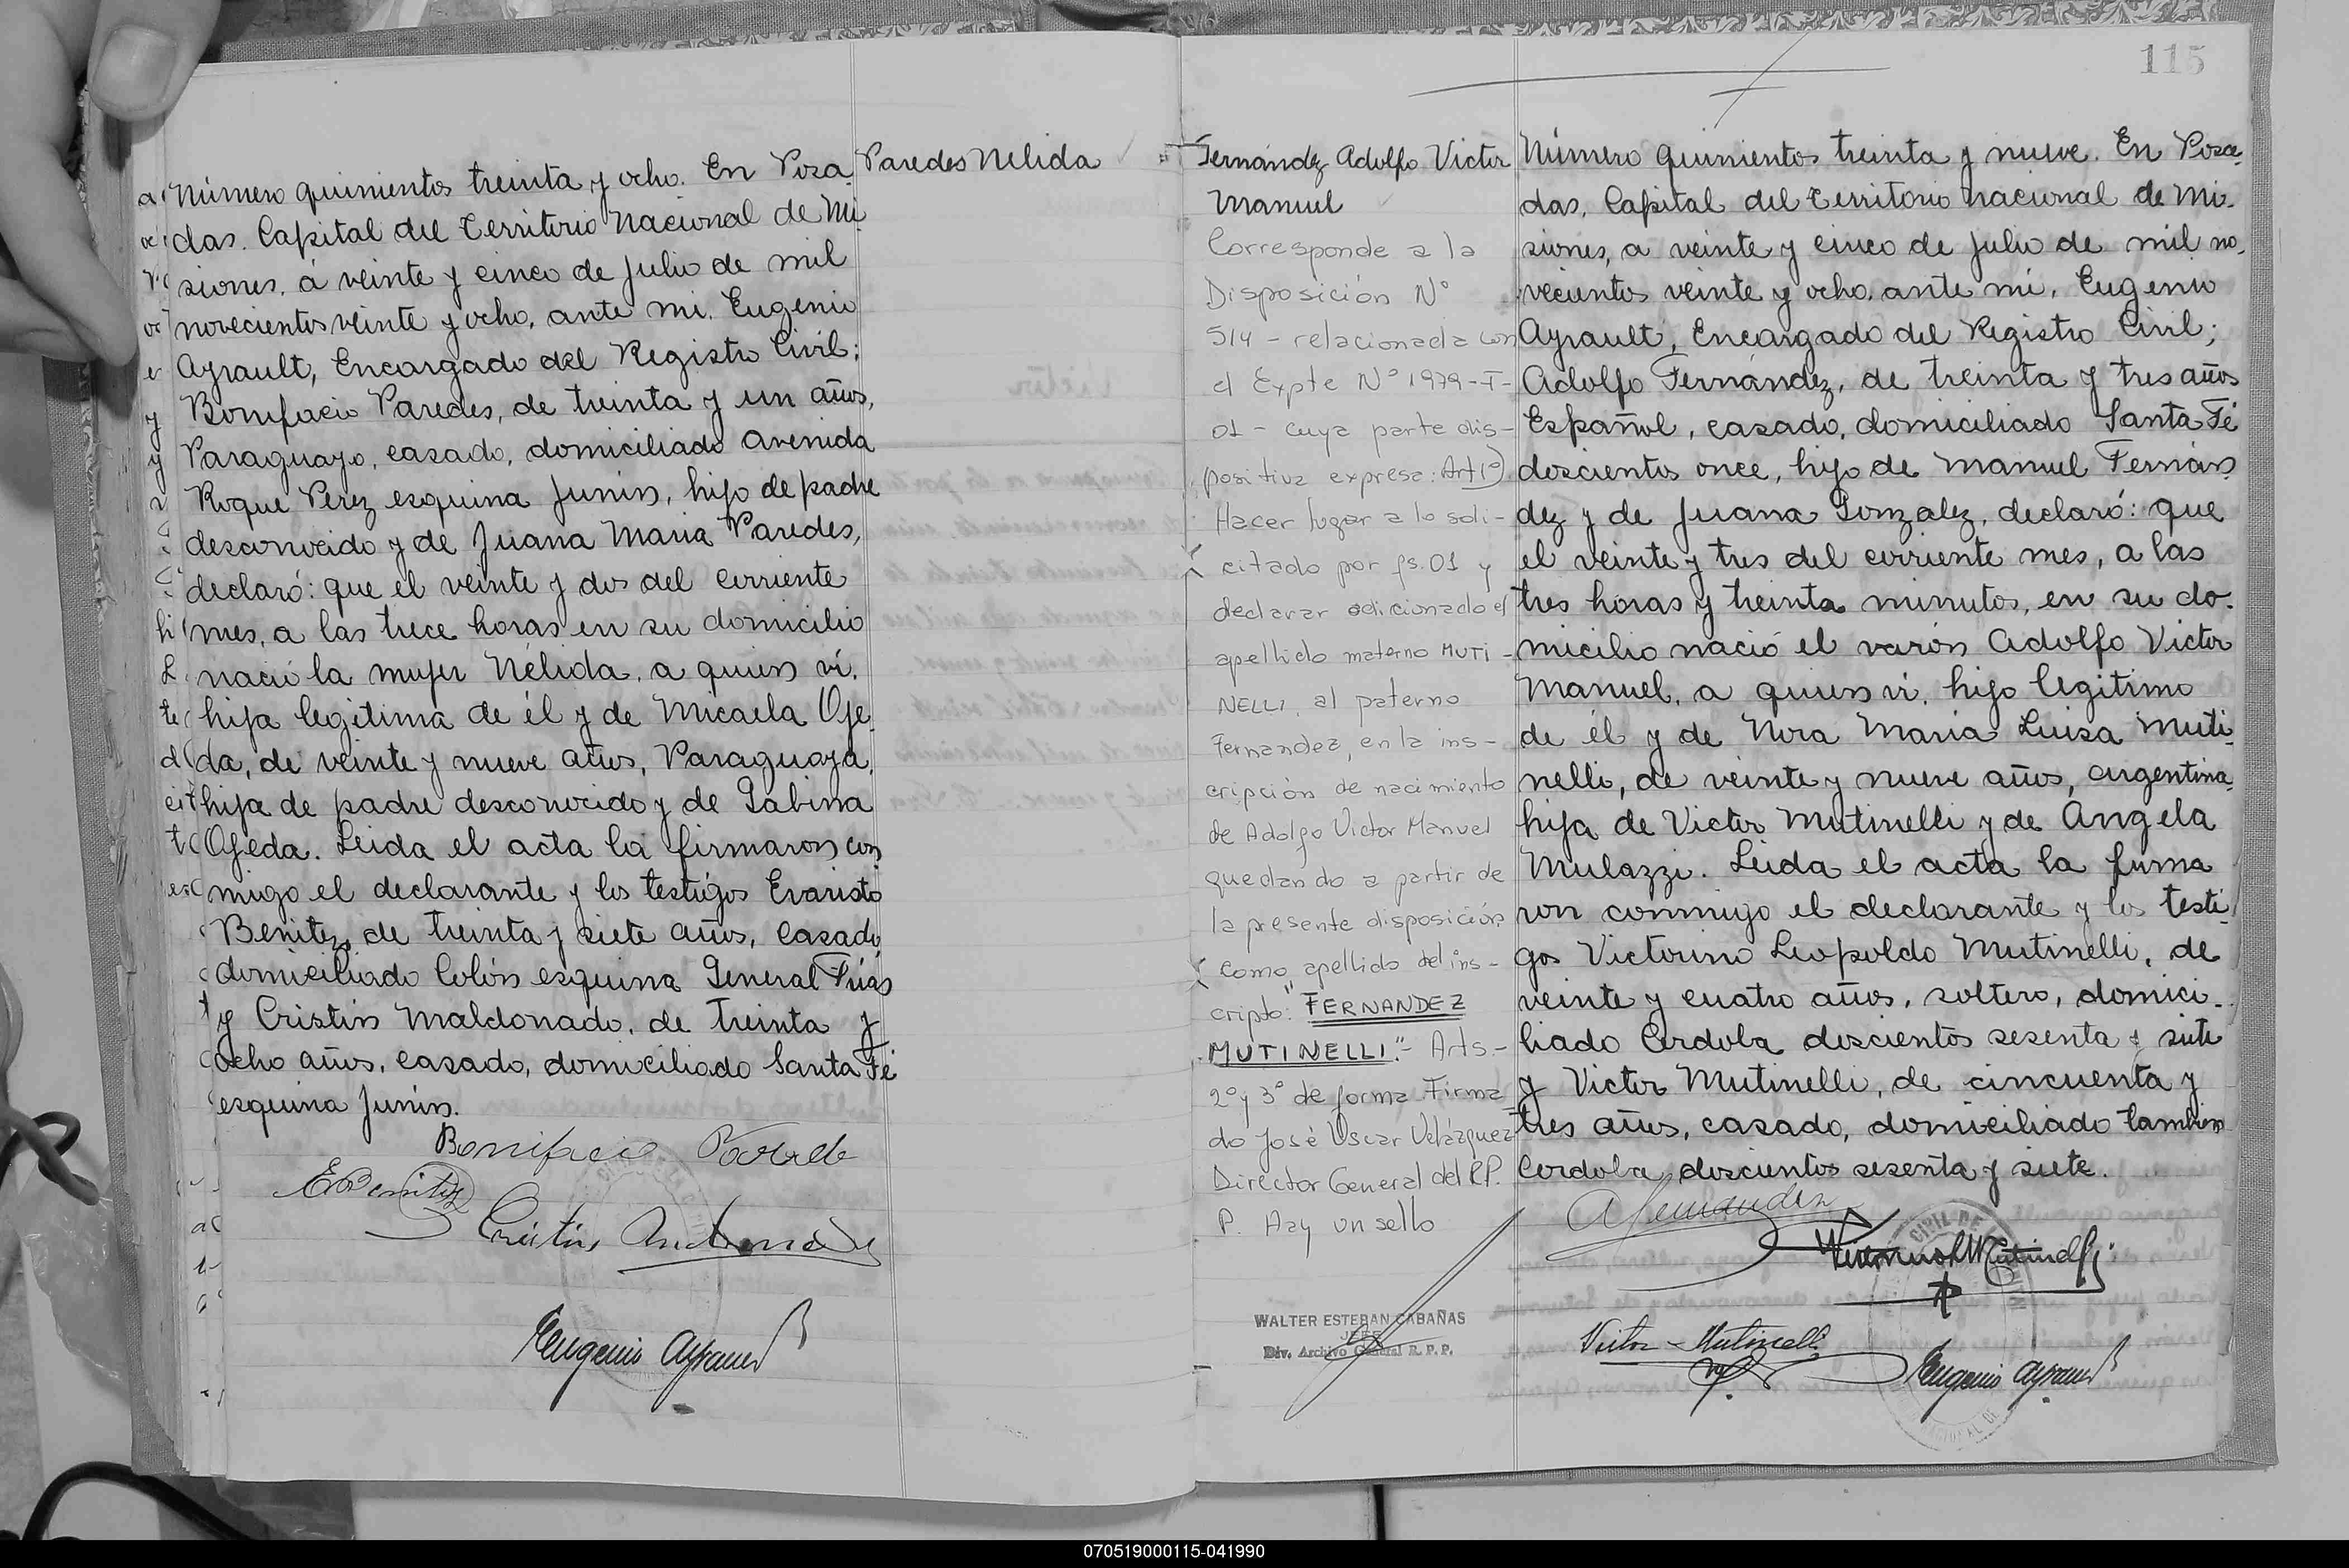 Número quinientos treinta y ocho. En Posa
das. Capital del Territorio Nacional de Mi
siones, á veinte y cinco de Julio de mil
novecientos veinte y ocho, ante mi. Eugenio
Ayrault, Encargado del Registro Civil;
Bonifacio Paredes, de treinta y un años,
Paraguayo, casado, domiciliado Avenida
Roque Perez esquina Junin, hijo de padre
desconocido y de Juana Maria Paredes,
declaró: que el veinte y dos del corriente
mes, a las trece horas en su domicilio
nació la mujer Nélida, a quien ví.
hija legitima de él y de Micaela Oje
da, de veinte y nueve años, Paraguaya,
hija de padre desconocido y de Sabina
Ojeda. Leida el acta la firmaron con
migo el declarante y los testigos Evaristo
Benitez, de treinta y siete años, casado
domiciliado Colón esquina General Frías
y Cristin Maldonado, de treinta y
ocho años, casado, domiciliado Santa Fé
esquina Junin.
Bonifacio Parede
E Benitez
Eugenio Ayrault
Paredes Nélida
115
Fernández Adolfo Victor
Manuel
Corresponde a la
Disposición N°
514 - relacionada con
el Expte N° 1979-T-
01 - cuya parte dis-
positiva expresa: Art 1°)
Hacer lugar a lo soli-
citado por fs. 01 y
declarar adicionado el
apellido materno MUTI-
NELLI, al paterno
Fernandez, en la ins-
cripción de nacimiento
de Adolfo Victor Manuel
quedando a partir de
la presente disposición
como apellido del ins-
cripto: "FERNANDEZ
MUTINELLI".- Arts.-
2° y 3° de forma Firma
do José Oscar Velázquez
Director General del R.P.
P. Hay un sello
WALTER ESTEBAN CABAÑAS
JEFE
Div. Archivo General R. P. P.
Número quinientos treinta y nueve. En Posa-
das, Capital del Territorio Nacional de Mi-
siones, a veinte y cinco de Julio de mil no-
vecientos veinte y ocho, ante mi, Eugenio
Ayrault, Encargado del Registro Civil;
Adolfo Fernández, de treinta y tres años
Español, casado, domiciliado Santa Fé
doscientos once, hijo de Manuel Fernán
dez y de Juana Gonzalez, declaró: que
el veinte y tres del corriente mes, a las
tres horas y treinta minutos, en su do-
micilio nació el varón Adolfo Victor
Manuel, a quien ví, hijo legitimo
de él y de Nora Maria Luisa Muti-
nelli, de veinte y nueve años, argentina,
hija de Victor Mutinelli y de Angela
Mulazzi. Leida el acta la firma
ron conmigo el declarante y los testi
gos Victorino Leopoldo Mutinelli, de
veinte y cuatro años, soltero, domici-
liado Cordoba doscientos sesenta y siete
y Victor Mutinelli, de cincuenta y
tres años, casado, domiciliado tambien
Cordoba doscientos sesenta y siete.
A Fernandez
Victorino L Mutinelli
Victor Mutinelli
Eugenio Ayrault
070519000115-041990